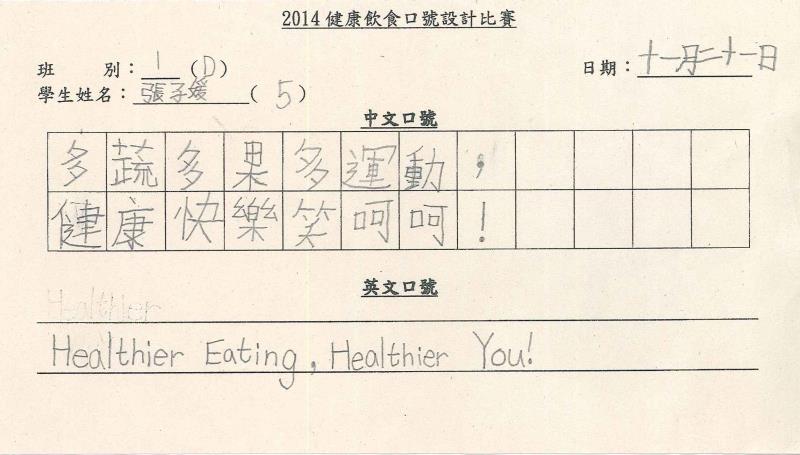 2014健康飲食口號設計比賽
班　　別：1 (D)　日期：十一月二十一日
學生姓名：張子媛 ( 5 )
中文口號
多蔬多果多運動；
健康快樂笑呵呵！
英文口號
Healthier
Healthier Eating, Healthier You!